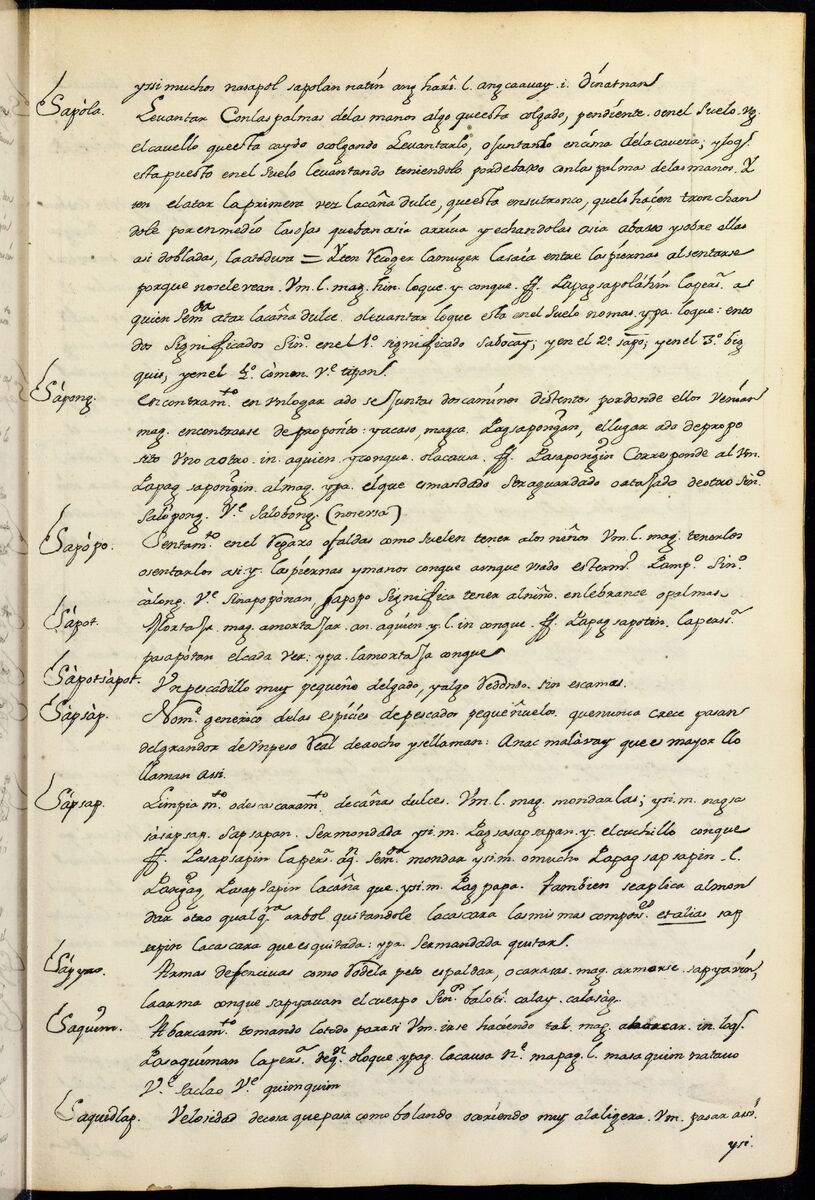 yssi muchos nasapol sapolan natin ang harî. l. ang caauay. i. dinatnan
Sapòla. Levantar Con las palmas de las manos algo que esta colgado, pendiente. o en el suelo. vg.
el cavello que esta caydo o colgando Levantarlo, o juntarlo encima de la cavera; y lo q̃.
esta puesto en el suelo levantando teniendolo por debaxo con la palma de las manos. Y
ten el atar la primera vez la caña dulce, que esta en su tronco, que lo haçen tronchan
dole por en medio las ojas que ban asia arriva y echandolas asia abaxo y sobre ellas
asi dobladas, la atadura = Yten Recoger la muger la saia entre las piernas al sentarse
porque no se le vean. Vm. l. mag. hin. lo que. y. con que. ff. Papagsapolàhin la persª. a
quien sem.da atar la caña dulce. o levantar lo que esta en el suelo no mas. y pa. lo que: en to
dos significados Sin.º en el 1.º significado saboay; y en el 2.º sapo; y en el 3.º big
quis, y en el 4.º còmon. V.e titpon.
Sàpong. Encontram.to en vn logar ado se juntas dos caminos distintos por donde ellos venian
mag. encontrarse de proposito: y acaso, magca. Pagsapongan, el lugar ado de propo
sito vno a otro. in. a quien y con que. o la causa. ff. Pasapongin Corresponde al Vm.
Papag sapongin. al mag. y pa. el que es mandado ser aguardado o atajado de otro sin.º
salopong. V.e Salobong. (no es sa)
Sapòpo. Sentam.to en el Regaxo o faldas como suelen tener a los niños Vm. l. mag. tenerlos
o sentarlos asi. y. las piernas y manos con que aunque vsado es term.º Pamp.º Sin.º
càlong. V.e sinapopònan sapopo significa tener al niño. en lebrance o palmas
Sàpot. Mortaja. mag. amortajar. an. a quien. y. l. in con que. ff. Papag sapotin. la persª.
pasapòtan el cada ver: y pa. la mortaja con que
Sàpotsàpot. Vn pescadillo muy pequeño delgado, y algo Redondo. sin escamas.
Sàpsàp. Nom.e generico de las espicies de pescados pequeñuelos. que nunca crece pasan
del grandor de vn peso Real de a ocho y se llaman: Anac malàvay que es mayor llo
llaman assi.
Sàpsap. Limpia m.to o descascaram.to de cañas dulces. Vm. l. mag. mondarlas; y si. m. nagsa
sàsapsap. Sapsapan. Ser mondada y si. m. Pagsasapsapan. y. el cuchillo con que
ff. Pasapsapin la persª. a q.n sem.da mondar y si. m. o mucho Papag sapsapin. l.
Pasapsapin la caña que. y si. m. Pag papa. tambien se aplica al mon
dar otro qualq.ra arbol quitandole la cascara las mismas composi.es et alias sap
sapin la cascara que es quitada: y pa. ser mandada quitar.
Sàpyao. Armas defencivas como Rodela peto espaldar, o carasas. mag. armarse. sapyavin,
la arma con que sapyauan el cuerpo Sin.º baloti. calay. calasàg.
Saquim. Abarcam.to tomando lo todo para si Vm. irse haciendo tal. mag. abarcar. in. lo q̃.
Pasaquiman la persª. de q.n o lo que. y pag. la causa N.e mapag. l. masaquim na tauo
V.e saclao V.e quimquim
Saquidlap. Velosidad de cosa que pasa como bolando o corriendo muy a la ligera. Vm. pasar assi
y si.